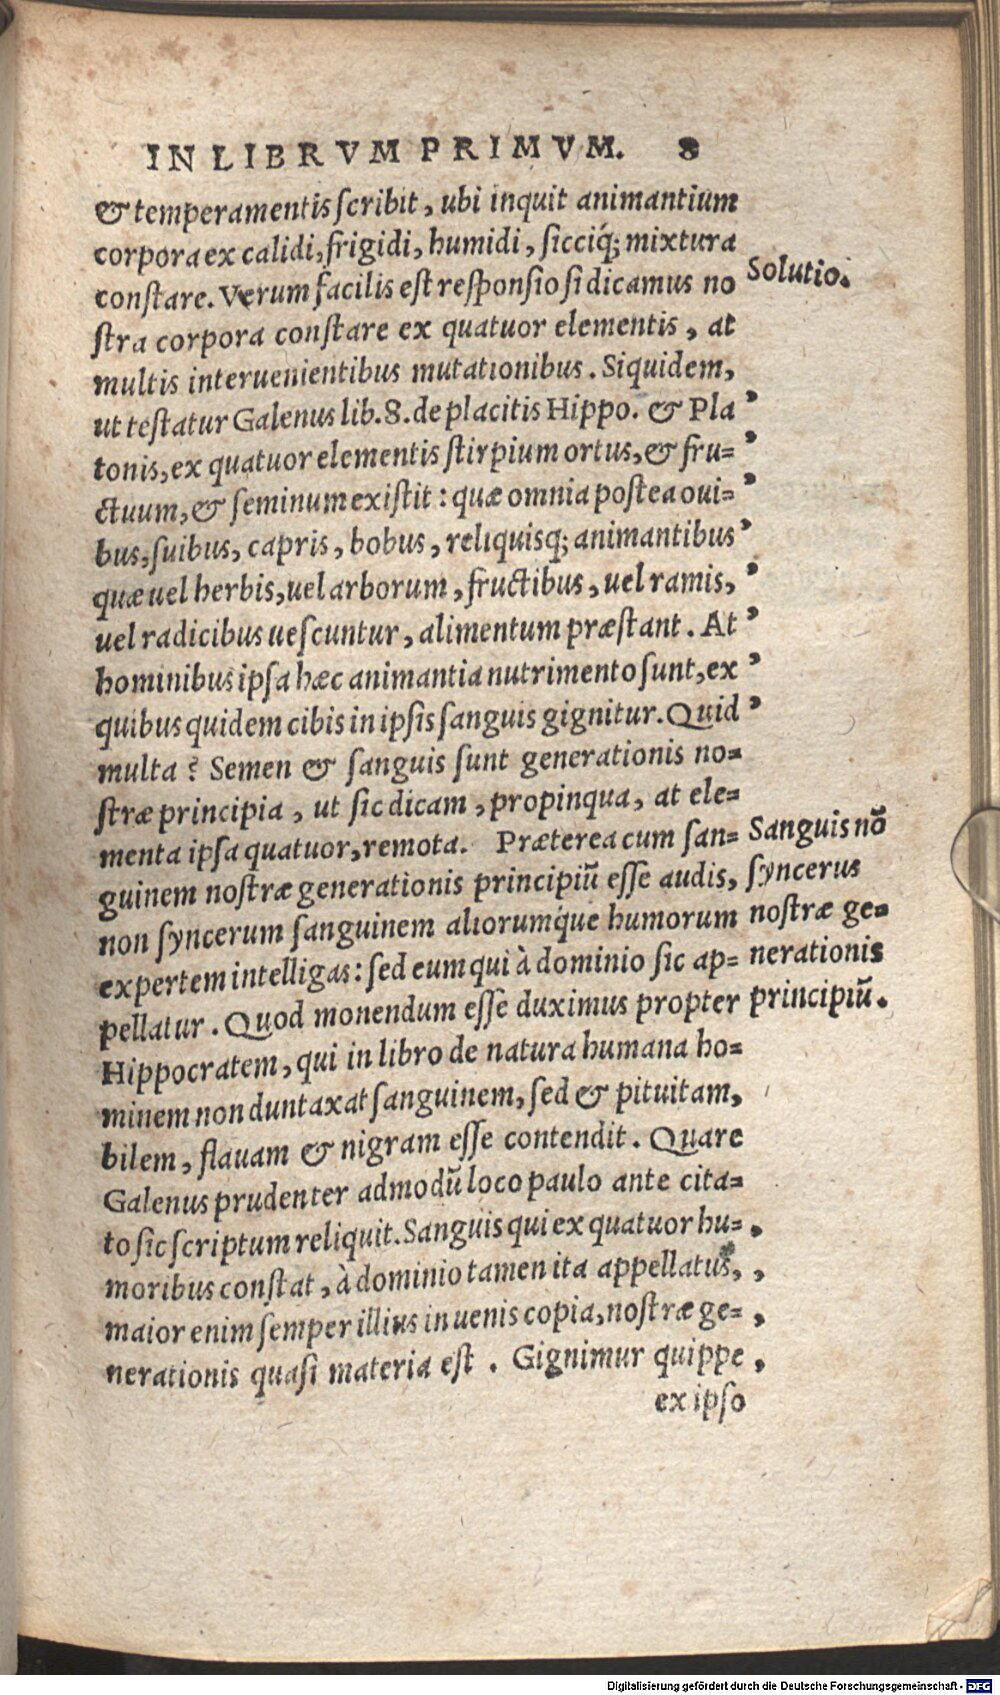 IN LIBRVM PRIMVM. 8
& temperamentis scribit, ubi inquit animantium
corpora ex calidi, frigidi, humidi, sicciq́; mixtura
constare. Verum facilis est responsio si dicamus no
stra corpora constare ex quatuor elementis, at
multis interuenientibus mutationibus. Siquidem,
ut testatur Galenus lib. 8. de placitis Hippo. & Pla
tonis, ex quatuor elementis stirpium ortus, & fru=
ctuum, & seminum existit: quæ omnia postea oui=
bus, suibus, capris, bobus, reliquisq; animantibus
quæ uel herbis, uel arborum, fructibus, uel ramis,
uel radicibus uescuntur, alimentum præstant. At
hominibus ipsa hæc animantia nutrimento sunt, ex
quibus quidem cibis in ipsis sanguis gignitur. Quid
multa? Semen & sanguis sunt generationis no=
stræ principia, ut sic dicam, propinqua, at ele=
menta ipsa quatuor, remota. Præterea cum san=
guinem nostræ generationis principiũ esse audis,
non syncerum sanguinem aliorumq́ue humorum
expertem intelligas: sed eum qui à dominio sic ap=
pellatur. Quod monendum esse duximus propter
Hippocratem, qui in libro de natura humana ho=
minem non duntaxat sanguinem, sed & pituitam,
bilem, flauam & nigram esse contendit. Quare
Galenus prudenter admodũ loco paulo ante cita=
to sic scriptum reliquit. Sanguis qui ex quatuor hu=
moribus constat, à dominio tamen ita appellatus,
maior enim semper illius in uenis copia, nostræ ge=
nerationis quasi materia est. Gignimur quippe
ex ipso
Solutio.
Sanguis nõ
syncerus
nostræ ge=
nerationis
principiũ.
Digitalisierung gefördert durch die Deutsche Forschungsgemeinschaft - DFG